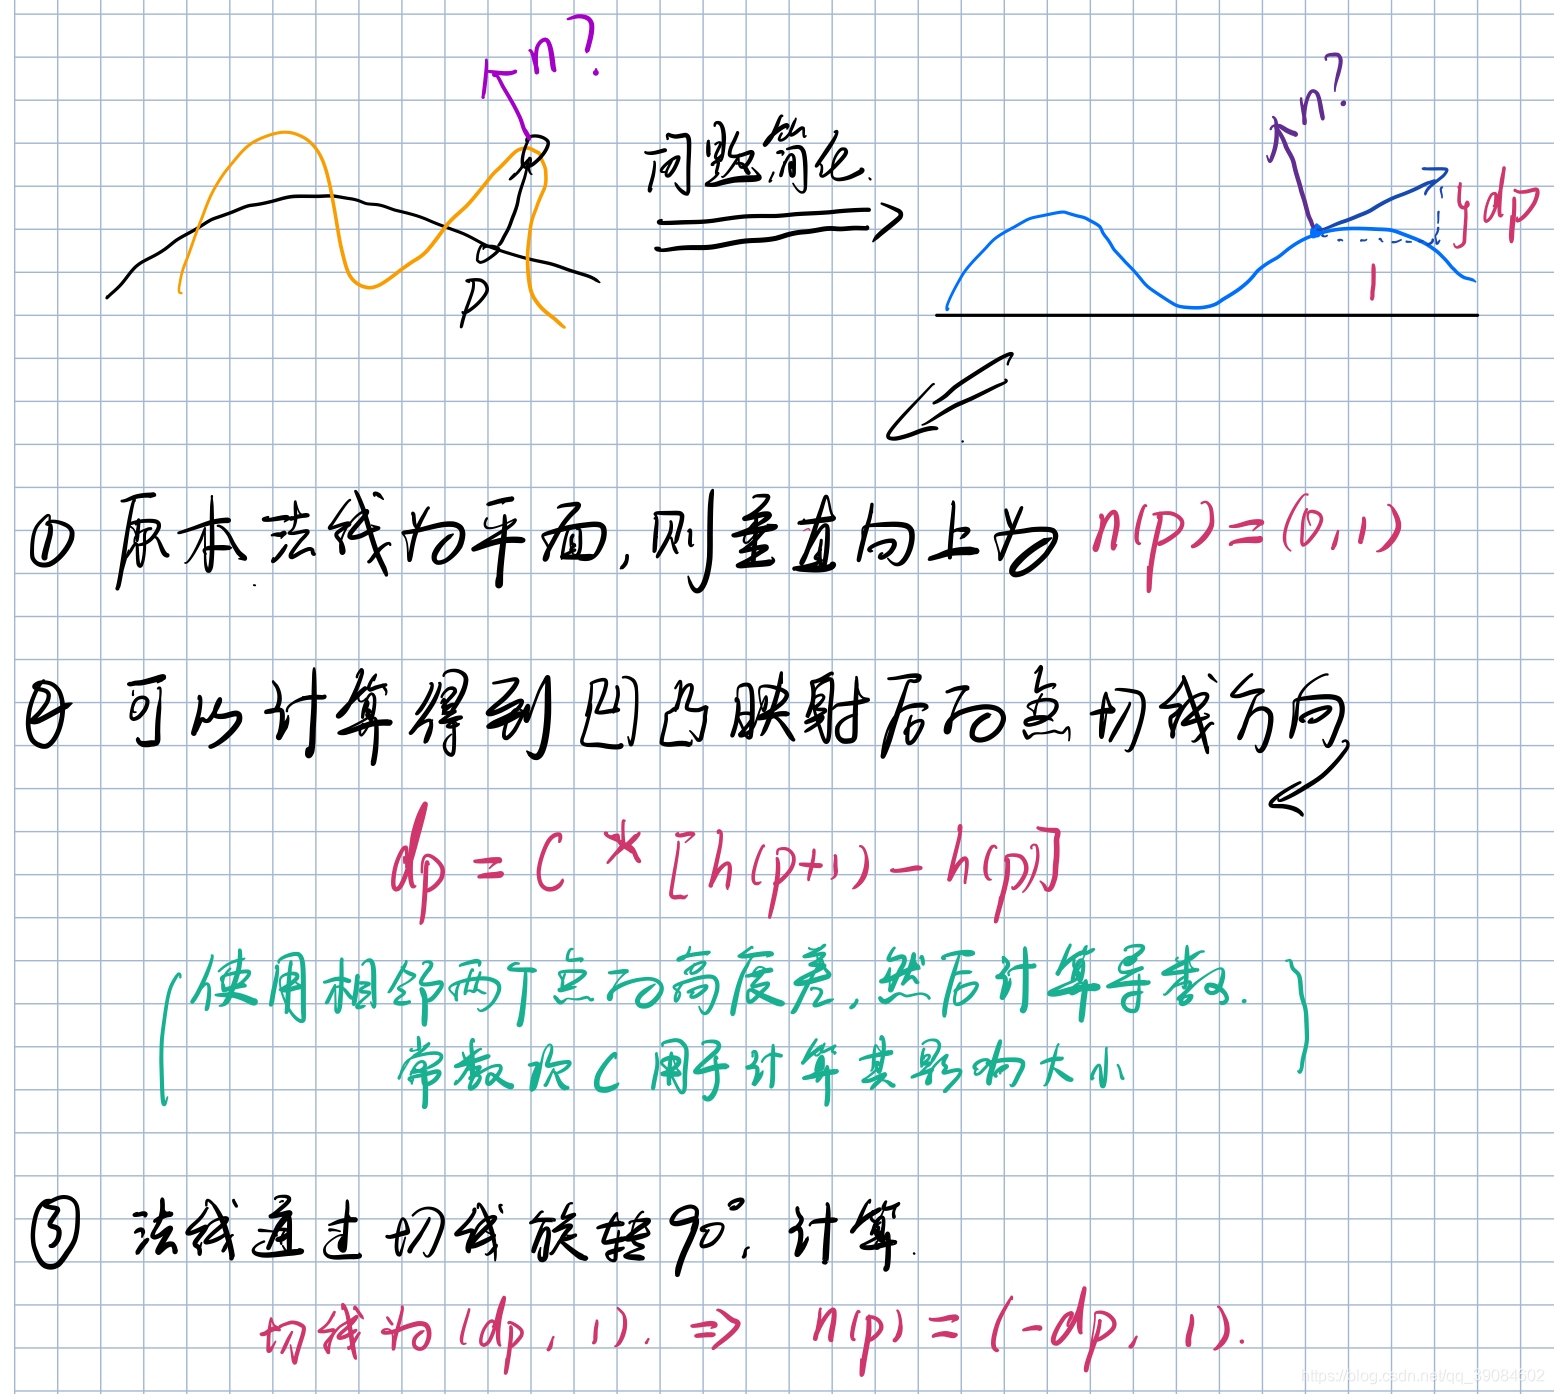 n?
问题简化.
n?
dp
1
P
① 原本法线为平面,则垂直向上为 n(p)=(0,1)
② 可以计算得到凹凸映射后的点切线方向
dp = C * [h(p+1) - h(p)]
(使用相邻两个点的高度差,然后计算导数.
常数项 C 用于计算其影响大小)
③ 法线通过切线旋转90°,计算.
切线为(dp, 1). => n(p) = (-dp, 1).
https://blog.csdn.net/qq_39084602